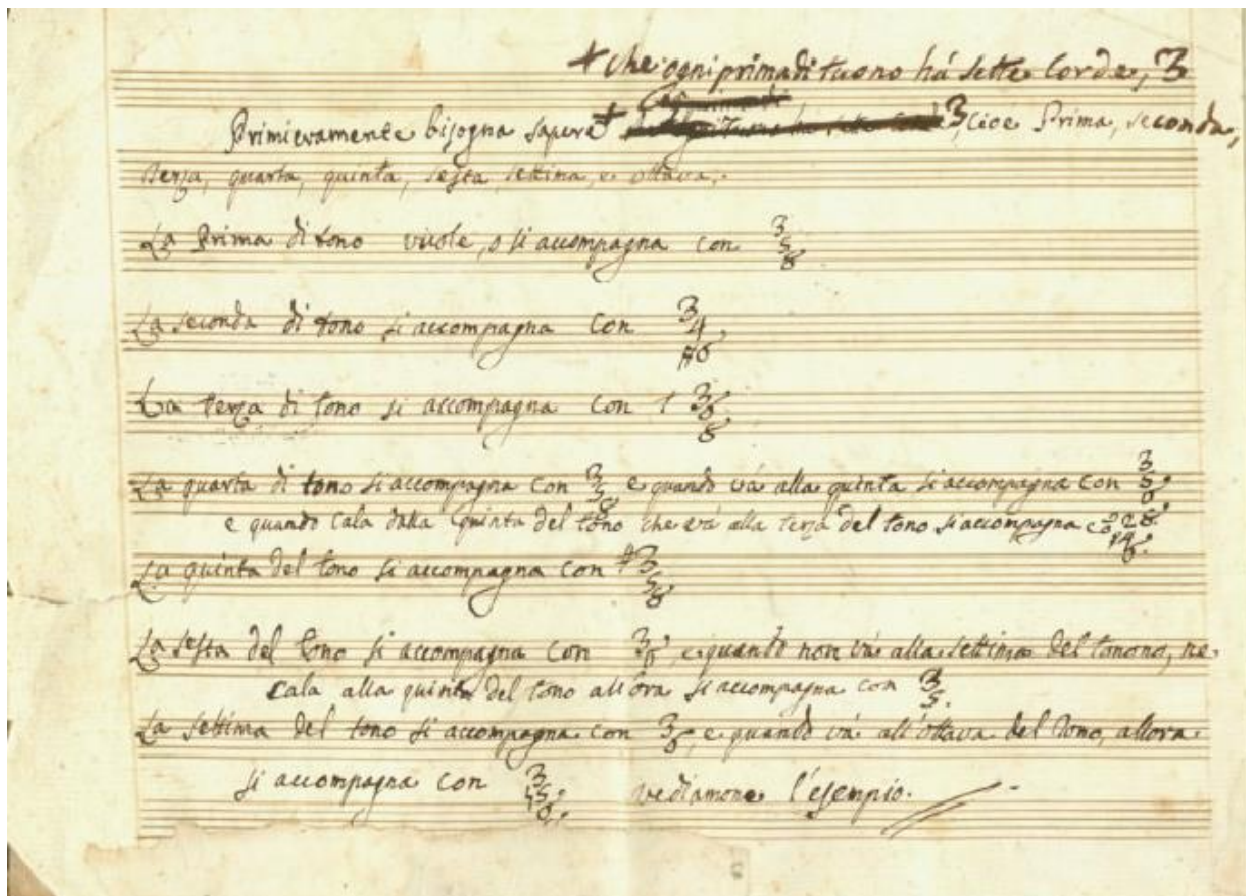 + che ogni prima di tuono há sette Corde, 3
Primieramente bisogna sapere + 3, cioè Prima, seconda,
terza, quarta, quinta, sesta, settima, e ottava.
La Prima di tono vuole, o si accompagna con 3 5 8
La seconda di tono si accompagna Con 3 4 #6
La terza di tono si accompagna Con 3 6 8
La quarta di tono si accompagna Con 3 5 8 e quando vá alla quinta si accompagna con 3 5 6
e quando Cala dalla Quinta del tono che vá alla terza del tono si accompagna co 2 #4 6.
La quinta del tono si accompagna con #3 5 8
La sesta del tono si accompagna Con 3 6, e quando non vá alla settima del tonono, ne
Cala alla quinta del tono allora si accompagna con 3 5.
La settima del tono si accompagna con 3 6, e quando vá all'ottava del tono, allora
si accompagna con 3 5 6. vediamone l'esempio.